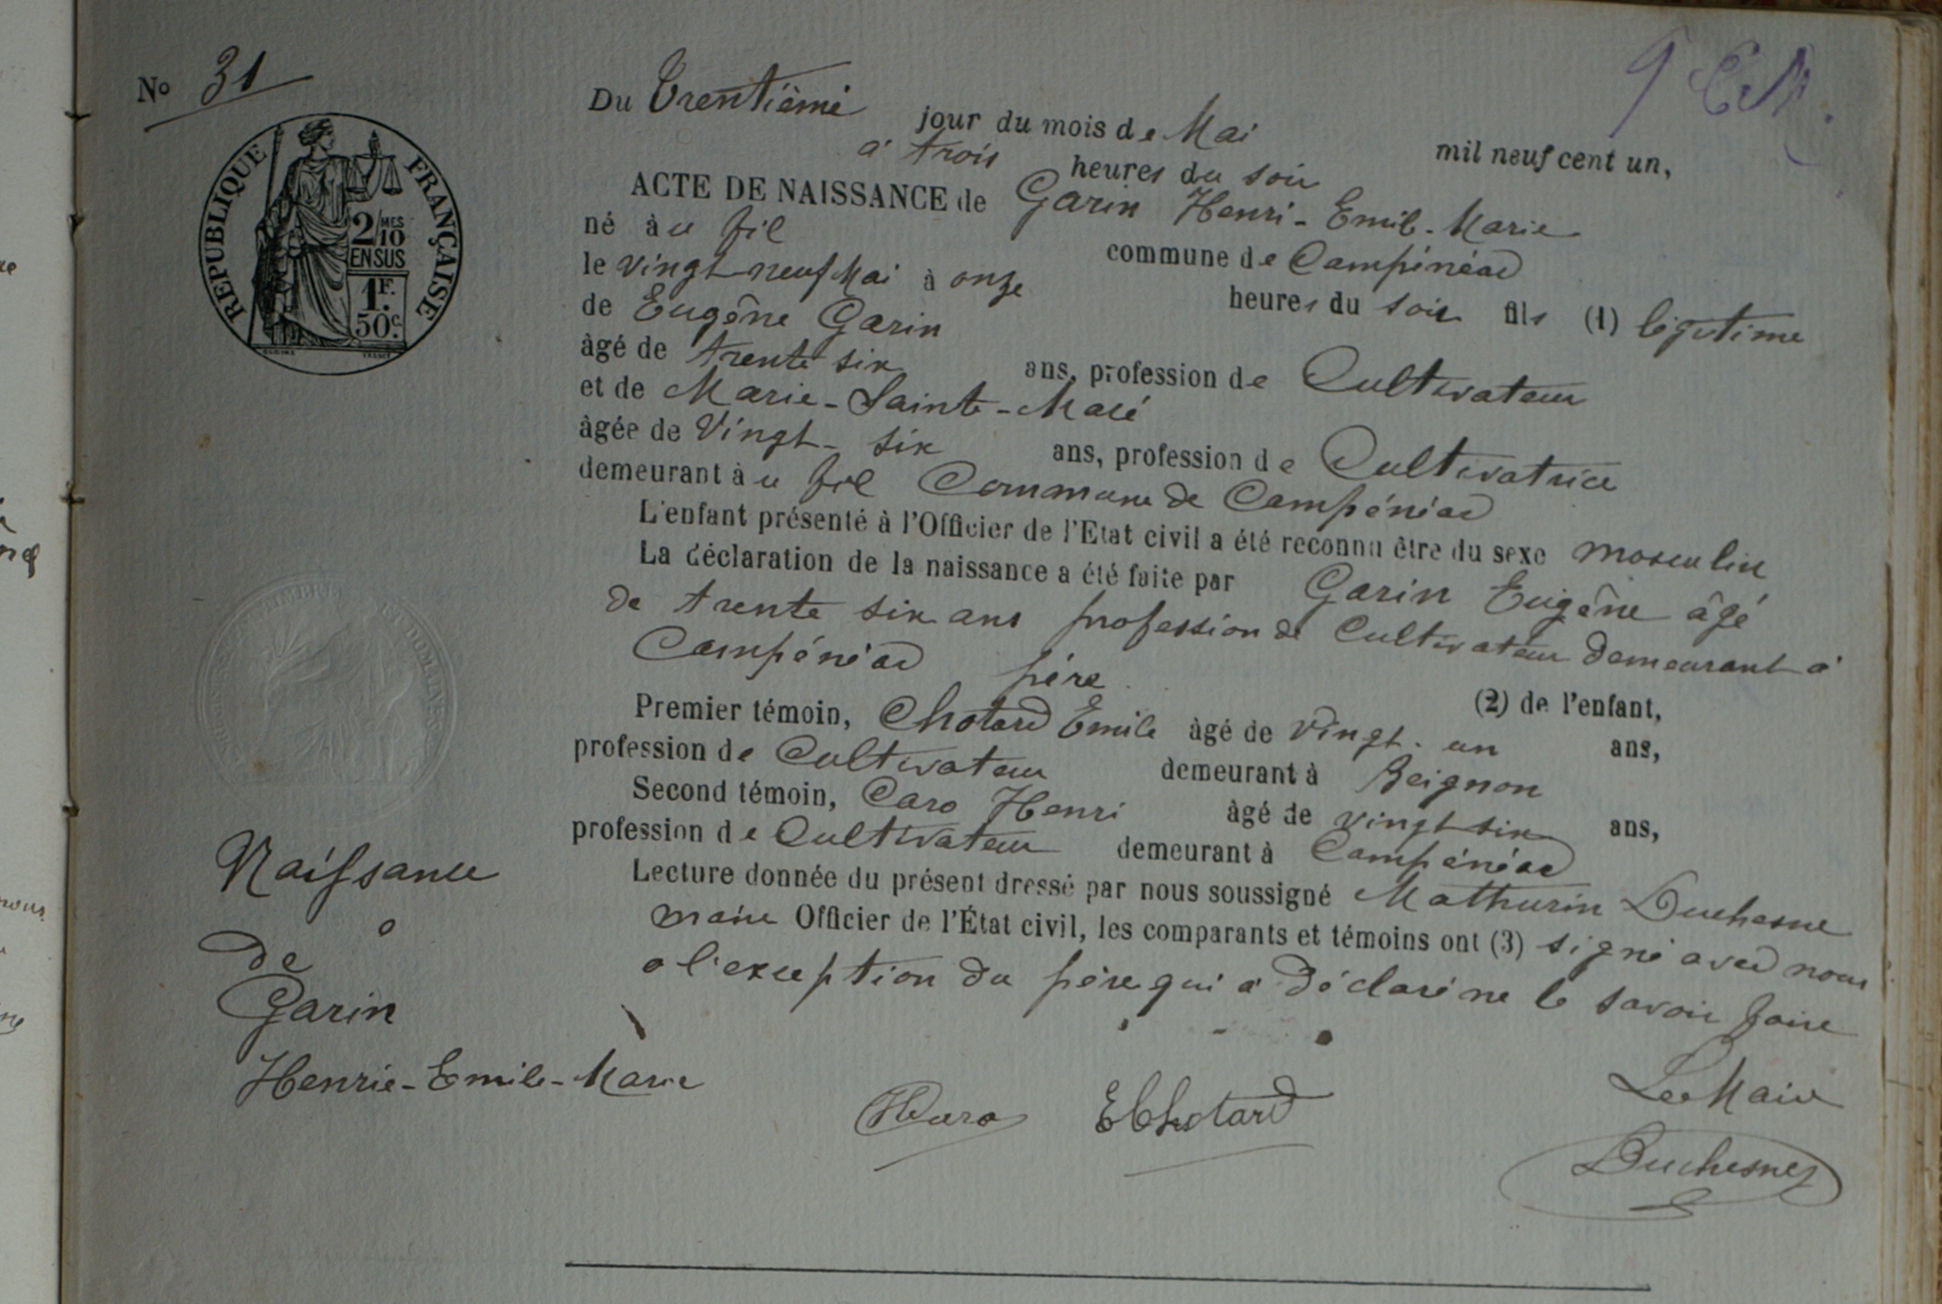 No 31
REPUBLIQUE FRANÇAISE
2/10 MES
EN SUS
1F.
50c.
Naissance
de
Garin
Henrie-Emile-Marie
Du Trentième jour du mois de Mai mil neuf cent un,
à trois heures du soir
ACTE DE NAISSANCE de Garin Henri-Emile-Marie
né à u fil commune de Campénéac
le vingt neuf Mai à onze heures du soir fils (1) légitime
de Eugène Garin
âgé de trente six ans, profession de Cultivateur
et de Marie-Sainte-Macé
âgée de Vingt-six ans, profession de Cultivatrice
demeurant à u fil Commune de Campénéac
L'enfant présenté à l'Officier de l'Etat civil a été reconnu être du sexe masculin
La déclaration de la naissance a été faite par Garin Eugène âgé
de trente six ans profession de Cultivateur demeurant à
Campénéac père (2) de l'enfant,
Premier témoin, Chotard Emile âgé de Vingt-un ans,
profession de Cultivateur demeurant à Beignon
Second témoin, Caro Henri âgé de vingt six ans,
profession de Cultivateur demeurant à Campénéac
Lecture donnée du présent dressé par nous soussigné Mathurin Duchesne
maire Officier de l'État civil, les comparants et témoins ont (3) signé avec nous
à l'exception du père qui a déclaré ne le savoir faire
Le Maire
HCaro EChotard
Duchesne